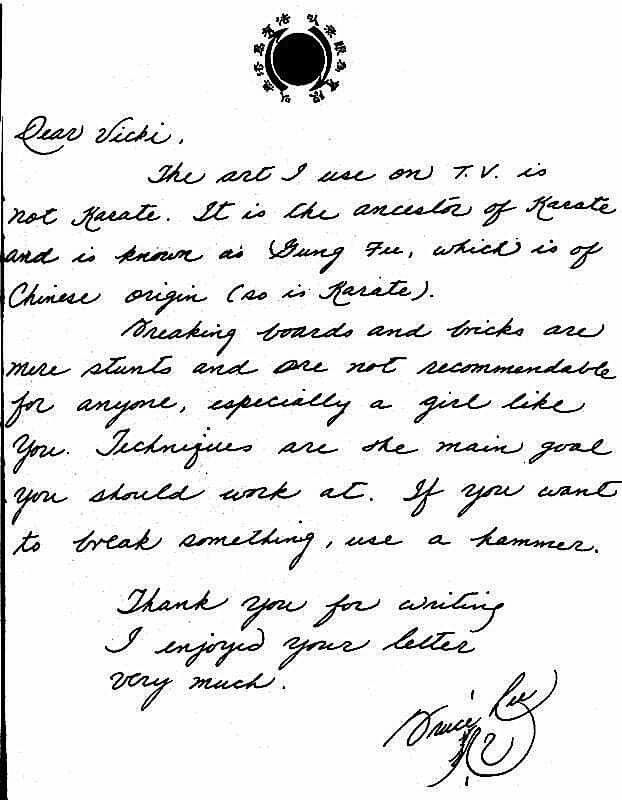 Dear Vicki,
The art I use on T.V. is
not Karate. It is the ancestor of Karate
and is known as Gung Fu, which is of
Chinese origin (so is Karate).
Breaking boards and bricks are
mere stunts and are not recommendable
for anyone, especially a girl like
you. Techniques are the main goal
you should work at. If you want
to break something, use a hammer.
Thank you for writing
I enjoyed your letter
very much.
Bruce Lee